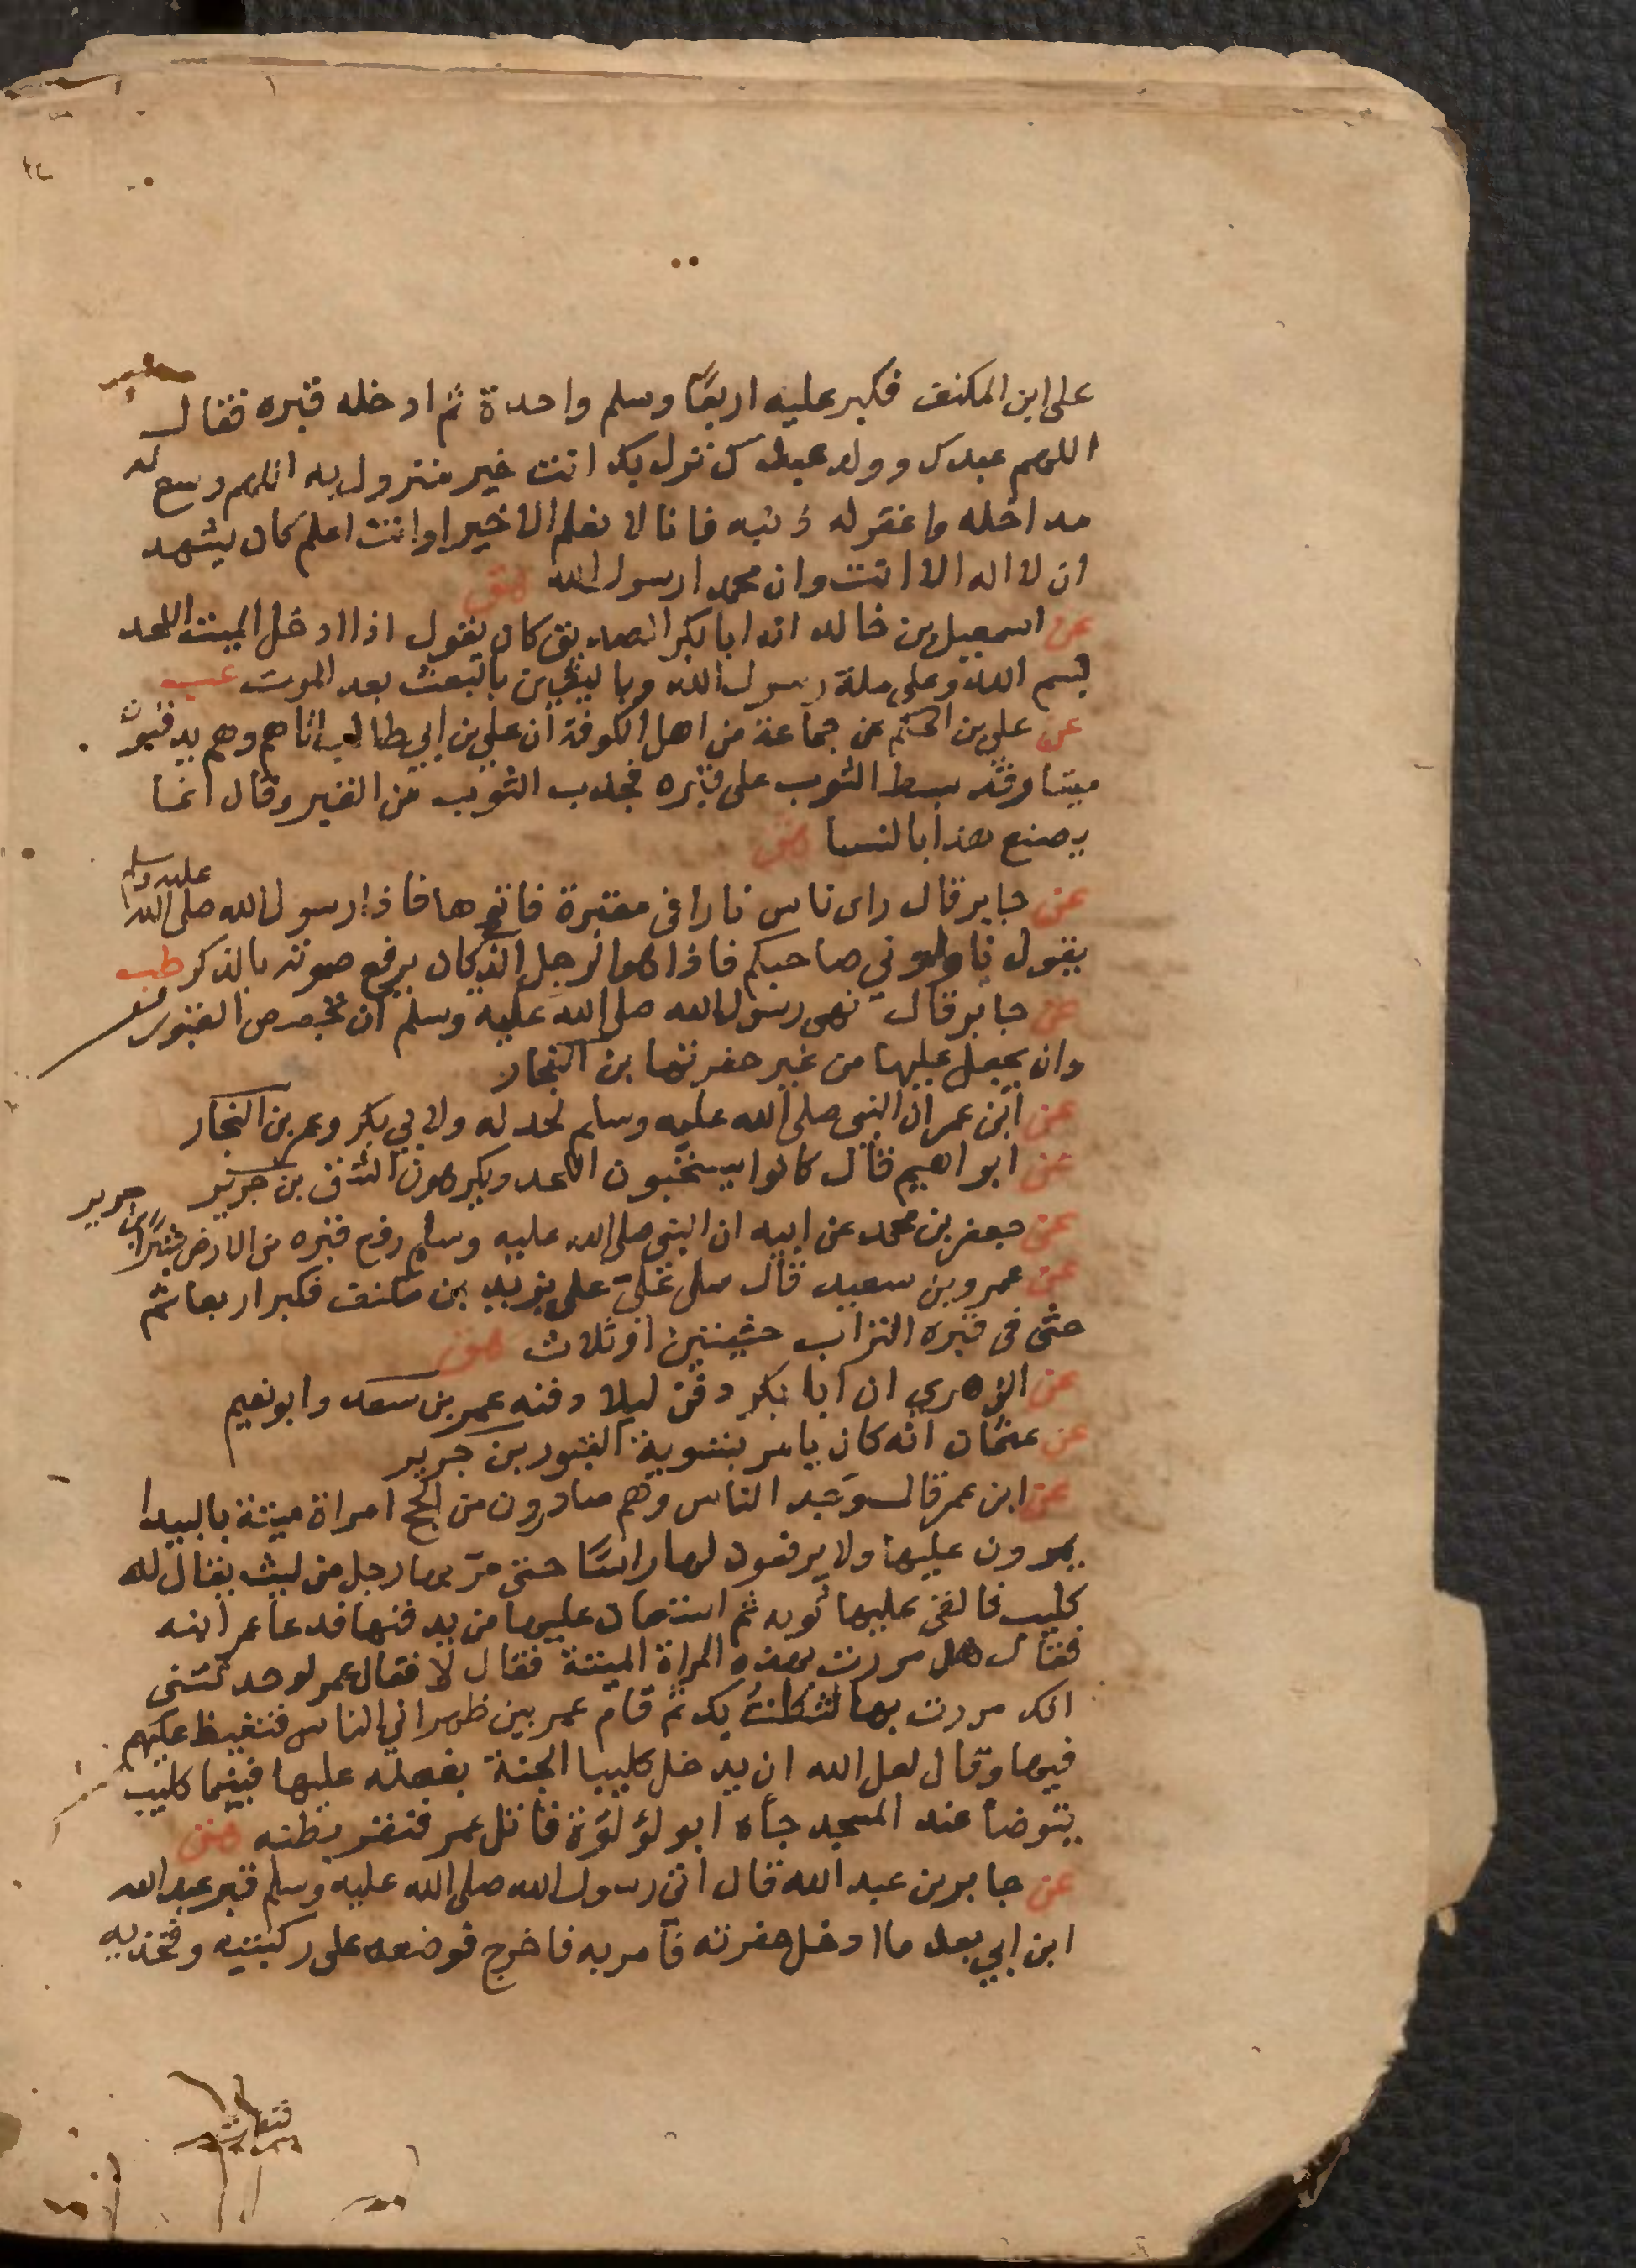 على ابن المكنف فكبر عليه اربعًا وسلم واحدة ثم ادخله قبره فقال
اللهم عبدك وولد عبدك نزل بك انت خير منزول به اللهم وسع له
مداخله واغفر له ذنبه فانا لا نعلم الا خيرا وانت اعلم كان يشهد
ان لا اله الا انت وان محمدا رسول الله هق
عن اسمعيل بن خالد ان ابا بكر الصديق كان يقول اذا ادخل الميت اللحد
بسم الله وعلى ملة رسول الله وباليقين بالبعث بعد الموت عب
عن علي بن الحكم عن جماعة من اهل الكوفة ان علي بن ابي طالب اتاهم وهم يدفنون
ميتا وقد بسط الثوب على قبره فجذب الثوب من القبر وقال انما
يصنع هذا بالنسا هق
عن جابر قال راى ناس نارا في مقبرة فاتوها فاذا رسول الله صلى الله عليه وسلم
يقول ناولوني صاحبكم فاذا هو الرجل الذي كان يرفع صوته بالذكر طب
عن جابر قال نهى رسول الله صلى الله عليه وسلم ان تجصص القبور
وان يجعل عليها من غير حفرتها بن النجار
عن ابن عمر ان النبي صلى الله عليه وسلم لحد له ولابي بكر وعمر بن النجار
عن ابراهيم قال كانوا يستحبون اللحد ويكرهون الشق بن جرير
عن جعفر بن محمد عن ابيه ان النبي صلى الله عليه وسلم رفع قبره من الارض شبرًا بن جرير
عن عمرو بن سعيد قال صلى علي على يزيد بن مكنف فكبر اربعا ثم
حثى في قبره التراب حثيتين او ثلاث هق
عن الزهري ان ابا بكر دفن ليلا دفنه عمر بن سعد وابو نعيم
عن عثمان انه كان يامر بتسوية القبور بن جرير
عن ابن عمر قال وجد الناس وهم صادرون من الحج امراة ميتة بالبيدا
يمرون عليها ولا يرفعون لها راسًا حتى مر بها رجل من ليث يقال له
كليب فالقى عليها ثوبه ثم استعان عليها من يدفنها فدعا عمر ابنه
فقال هل مررت بهذه المراة الميتة فقال لا فقال عمر لو حدثتني
انك مررت بها لنكلت بك ثم قام عمر بين ظهراني الناس فتغيظ عليهم
فيها وقال لعل الله ان يدخل كليبا الجنة بفعله عليها فبينما كليب
يتوضأ عند المسجد جاه ابو لؤلؤة قاتل عمر فبقر بطنه هق
عن جابر بن عبد الله قال اتى رسول الله صلى الله عليه وسلم قبر عبد الله
ابن ابي بعد ما ادخل حفرته فامر به فاخرج فوضعه على ركبتيه وفخذيه